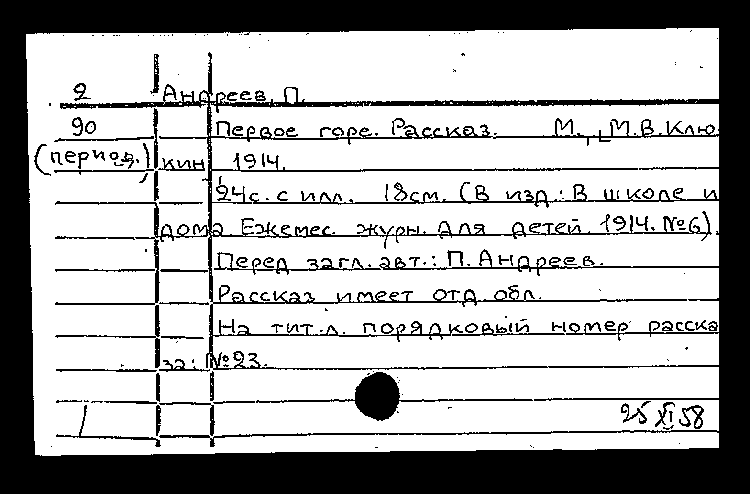 2 Андреев, П.
90 Первое горе. Рассказ. М., [М.В.Клю-
(период.) кин] 1914.
24с. с илл. 18см. (В изд.: В школе и
дома. Ежемес. журн. для детей. 1914. №6).
Перед загл. авт.: П. Андреев.
Рассказ имеет отд. обл.
На тит. л. порядковый номер расска
за: №23.
25 XI 58